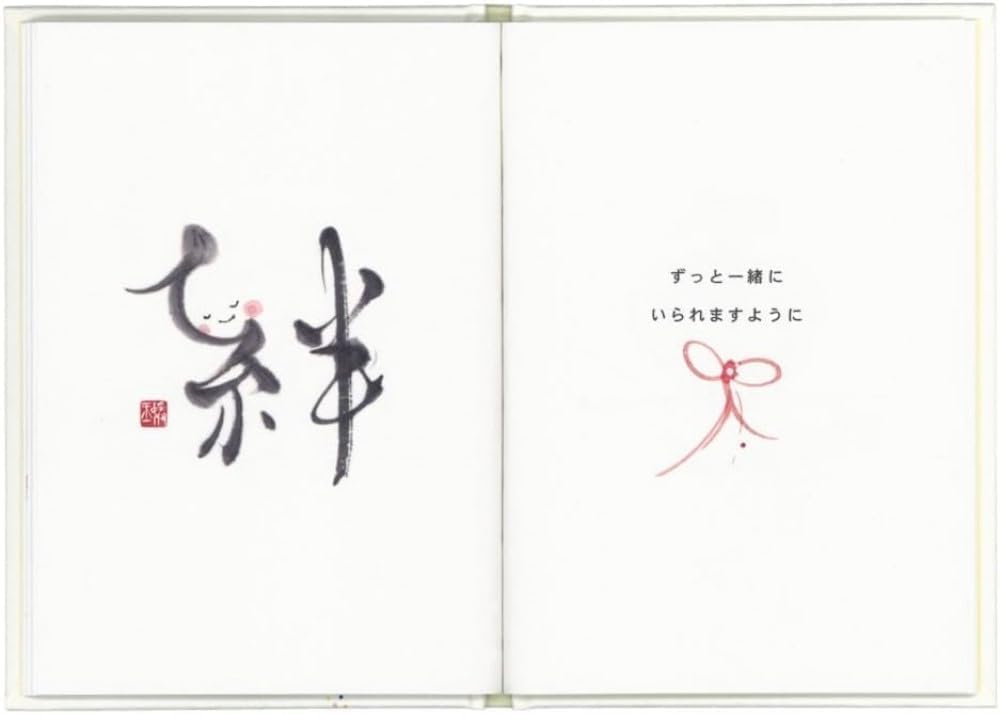 絆
ずっと一緒に
いられますように